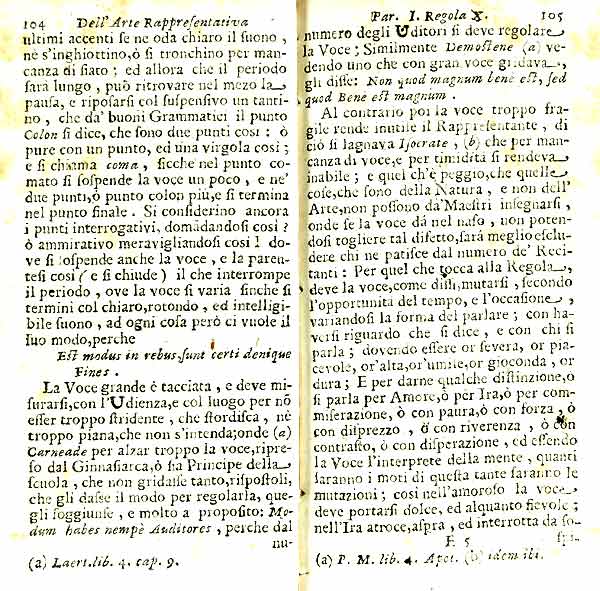 104 Dell'Arte Rappresentativa
ultimi accenti se ne oda chiaro il suono ,
nè s'inghiottino,ò si tronchino per man-
canza di fiato ; ed allora che il periodo
sarà lungo , può ritrovare nel mezo la
pausa, e riposarsi col suspensivo un tanti-
no , che da' buoni Grammatici il punto
Colon si dice, che sono due punti così : ò
pure con un punto, ed una virgola così ;
e si chiama coma , sicche nel punto co-
mato si sospende la voce un poco , e ne'
due punti,ò punto colon più,e si termina
nel punto finale . Si considerino ancora
i punti interrogativi, domādandosi così ?
ò ammirativo meravigliandosi così ! do-
ve si sospende anche la voce , e la paren-
tesi così ( e si chiude ) il che interrompe
il periodo , ove la voce si varia finche si
termini col chiaro,rotondo , ed intelligi-
bile suono , ad ogni cosa però ci vuole il
suo modo,perche
Est modus in rebus,sunt certi denique
Fines .
La Voce grande è tacciata , e deve mi-
surarsi,con l'Udienza,e col luogo per nō
esser troppo stridente , che stordisca , nè
troppo piana,che non s'intenda;onde (a)
Carneade per alzar troppo la voce,ripre-
so dal Ginnasiarca,ò sia Principe della
scuola , che non gridasse tanto,rispostoli,
che gli dasse il modo per regolarla, que-
gli soggiunse , e molto a proposito: Mo-
dum habes nempè Auditores , perche dal
nu-
(a) Laert.lib. 4. cap. 9.
Par. I. Regola X. 105
numero degli Uditori si deve regolare
la Voce ; Similmente Demostene (a) ve-
dendo uno che con gran voce gridava,
gli disse: Non quod magnum benè est, sed
quod Bene est magnum .
Al contrario poi la voce troppo fra-
gile rende inutile il Rappresentante , di
ciò si lagnava Isocrate , (b) che per man-
canza di voce,e per timidità si rendeva
inabile ; e quel ch'è peggio,che quelle
cose,che sono della Natura , e non dell'
Arte,non possono da'Maestri insegnarsi ,
onde se la voce dà nel naso , non poten-
dosi togliere tal difetto,sarà meglio esclu-
dere chi ne patisce dal numero de' Reci-
tanti : Per quel che tocca alla Regola ,
deve la voce,come dissi,mutarsi , secondo
l'opportunità del tempo, e l'occasione ,
variandosi la forma del parlare ; con ha-
versi riguardo che si dice , e con chi si
parla ; dovendo essere or severa, or pia-
cevole, or'alta,or'umile,or gioconda , or
dura ; E per darne qualche distinzione,ò
si parla per Amore,ò per Ira,ò per com-
miserazione, ò con paura,ò con forza , ò
con disprezzo , ò con riverenza , ò con
contrasto, ò con disperazione , ed essendo
la Voce l'interprete della mente , quanti
saranno i moti di questa tante saranno le
mutazioni ; così nell'amoroso la voce
deve portarsi dolce, ed alquanto fievole ;
nell'Ira atroce,aspra , ed interrotta da so-
E 5 spi-
(a) P. M. lib. 4. Apot. (b) idem ibi.